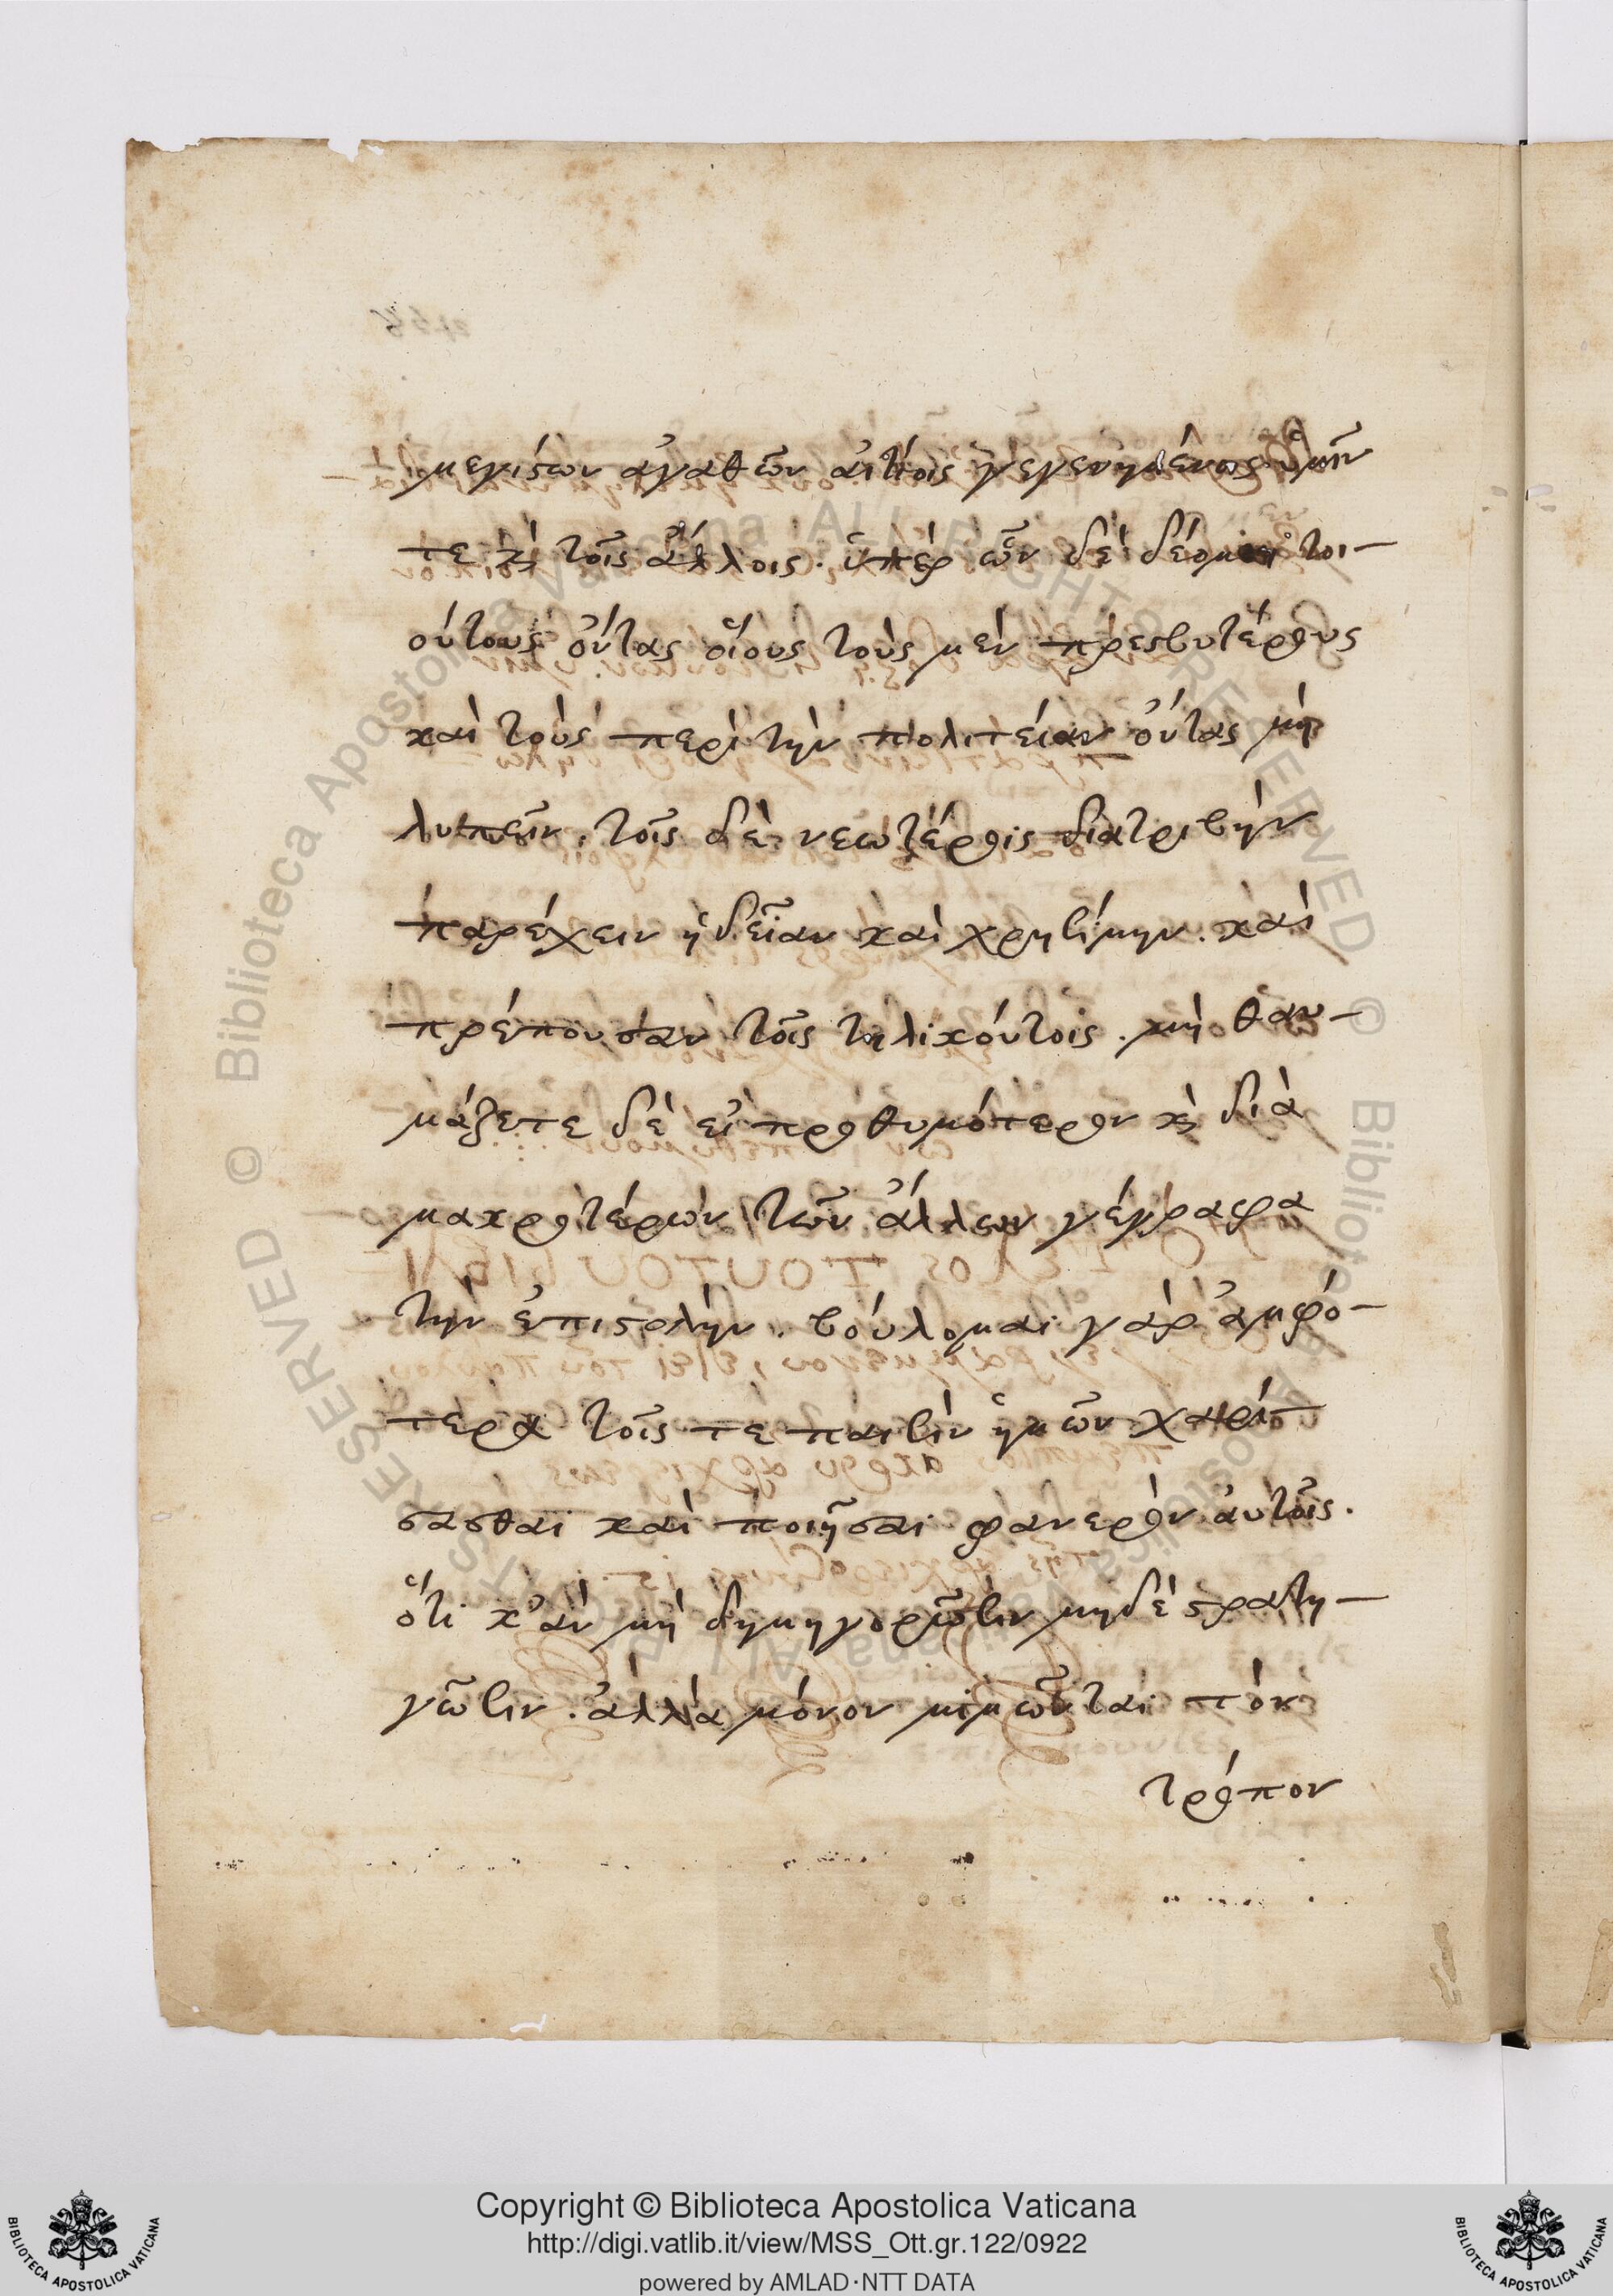 μεγίστων ἀγαθῶν αἰτίοις γεγενημένοις ὑμῖν
τε καὶ τοῖς ἄλλοις. ὑπὲρ ὧν δὲ δέομαι τοι-
ούτους ὄντας οἵους τοὺς μὲν πρεσβυτέρους
καὶ τοὺς περὶ τὴν πολιτείαν ὄντας μὴ
λυπεῖν. τοῖς δὲ νεωτέροις διατριβὴν
παρέχειν ἡδεῖαν καὶ χρησίμην. καὶ
πρέπουσαν τοῖς τηλικούτοις. μὴ θαυ-
μάζετε δὲ εἰ προθυμότερον καὶ διὰ
μακροτέρων τῶν ἄλλων γέγραφα
τὴν ἐπιστολήν. βούλομαι γὰρ ἀμφό-
τερα τοῖς τε παισὶν ἡμῶν χαρί-
σασθαι καὶ ποιῆσαι φανερὸν αὐτοῖς.
ὅτι κ'ἂν μὴ δημηγορῶσιν μηδὲ στρατη-
γῶσιν. ἀλλὰ μόνον μιμῶνται τὸν
τρόπον
Copyright © Biblioteca Apostolica Vaticana
http://digi.vatlib.it/view/MSS_Ott.gr.122/0922
powered by AMLAD·NTT DATA
BIBLIOTECA APOSTOLICA VATICANA
BIBLIOTECA APOSTOLICA VATICANA